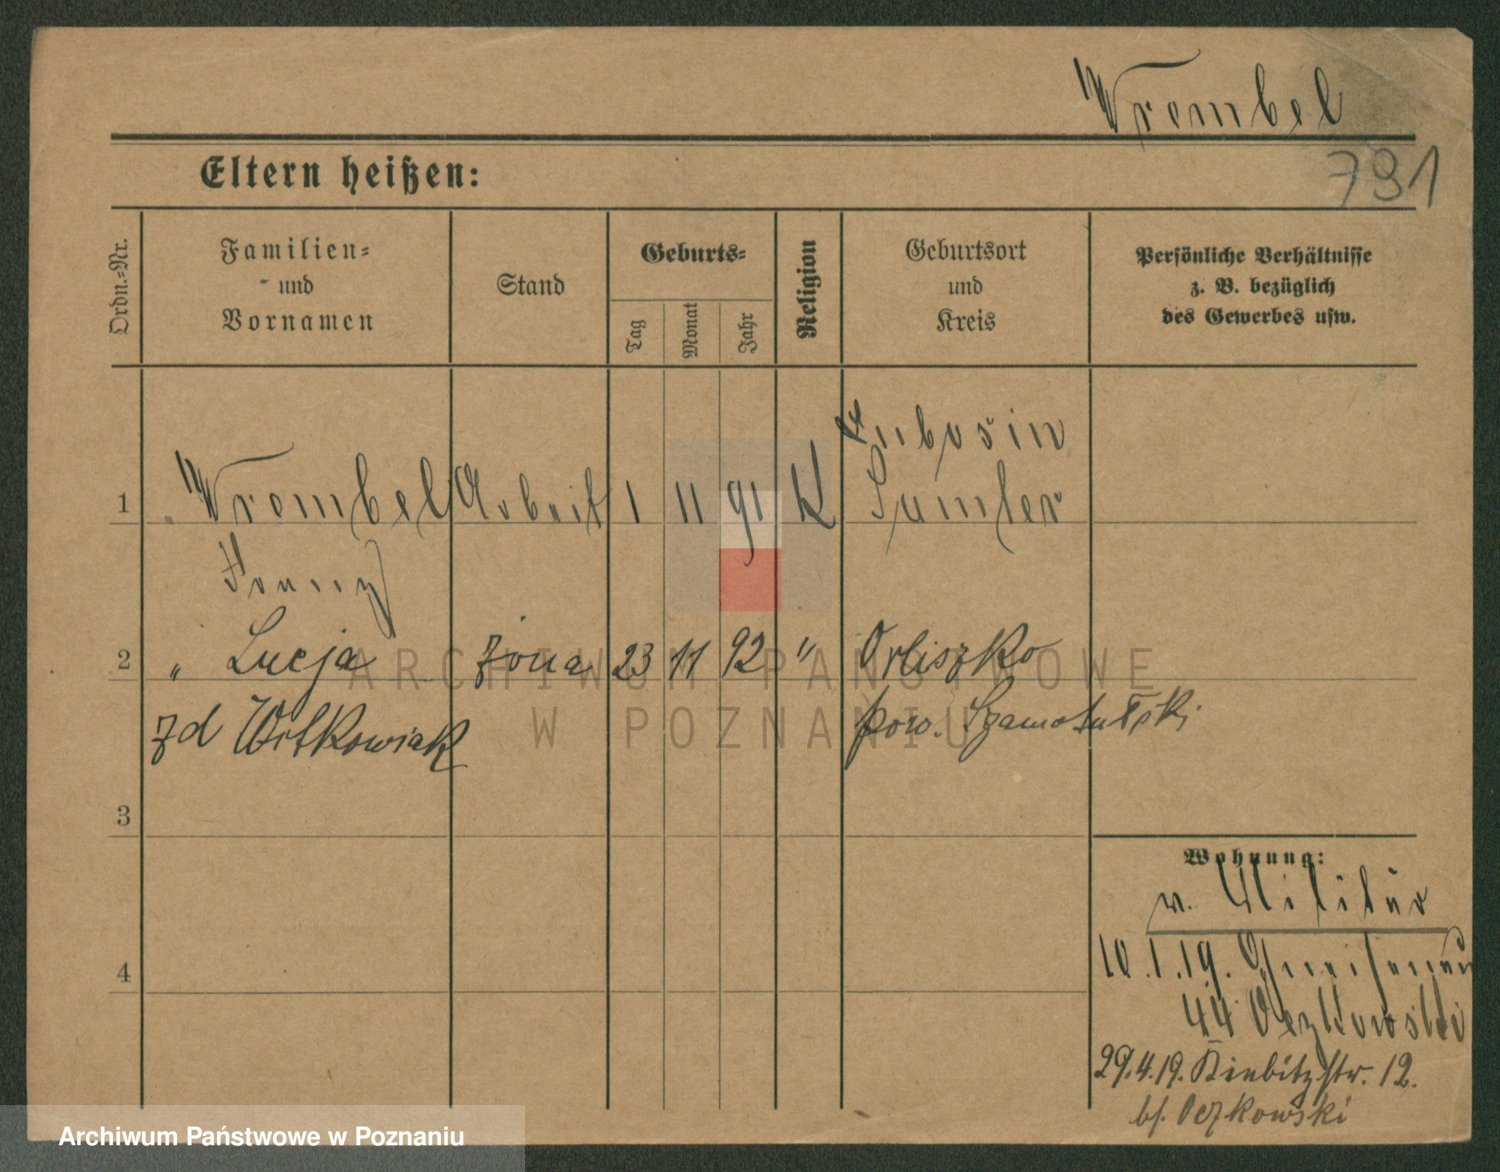 Wrembel
791
Eltern heißen:
Ordn.-Nr.
Familien-
und
Vornamen
Stand
Geburts-
Tag
Monat
Jahr
Religion
Geburtsort
und
Kreis
Persönliche Verhältnisse
z. B. bezüglich
des Gewerbes usw.
Lubosin
1 Wrembel Arbeit 1 11 91 K Samter
Franz
2 " Lucja żona 23 11 92 " Orliszko
zd Witkowiak pow. Szamotulski
3
Wohnung:
v. Militär
4
10.1.19. Gneisenau
44 Oczkowski
29.4.19. Kiebitzstr. 12.
bf. Oczkowski
ARCHIWUM PAŃSTWOWE
W POZNANIU
Archiwum Państwowe w Poznaniu